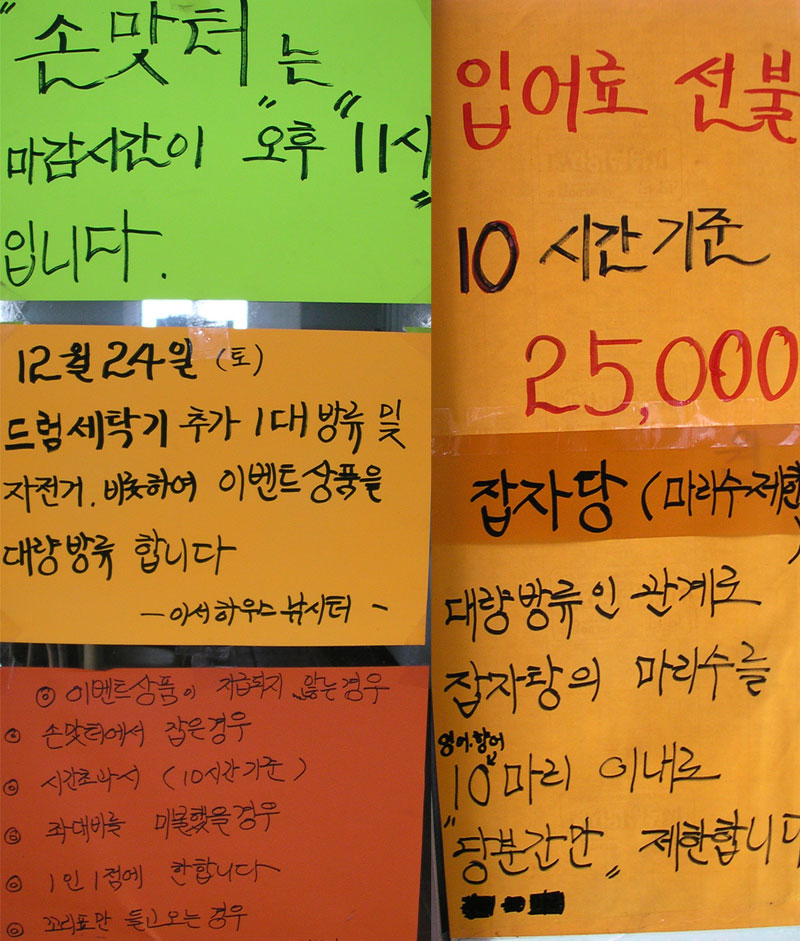 "손맛터"는
마감시간이 오후 "11시"
입니다.
12월 24일 (토)
드럼세탁기 추가 1대 방류 및
자전거, 비롯하여 이벤트상품을
대량방류 합니다
- 아셔하우스 낚시터 -
◎ 이벤트상품이 지급되지 않는경우
◎ 손맛터에서 잡은경우
◎ 시간초과시 (10시간기준)
◎ 좌대비를 미불했을경우
◎ 1인 1점에 한합니다
◎ 꼬리표만 들고오는경우
입어료 선불
10 시간기준
25,000
잡자당 (마리수제한)
대량방류인 관계로
잡자탕의 마리수를
영어.향어
10마리 이내로
"당분간만" 제한합니다